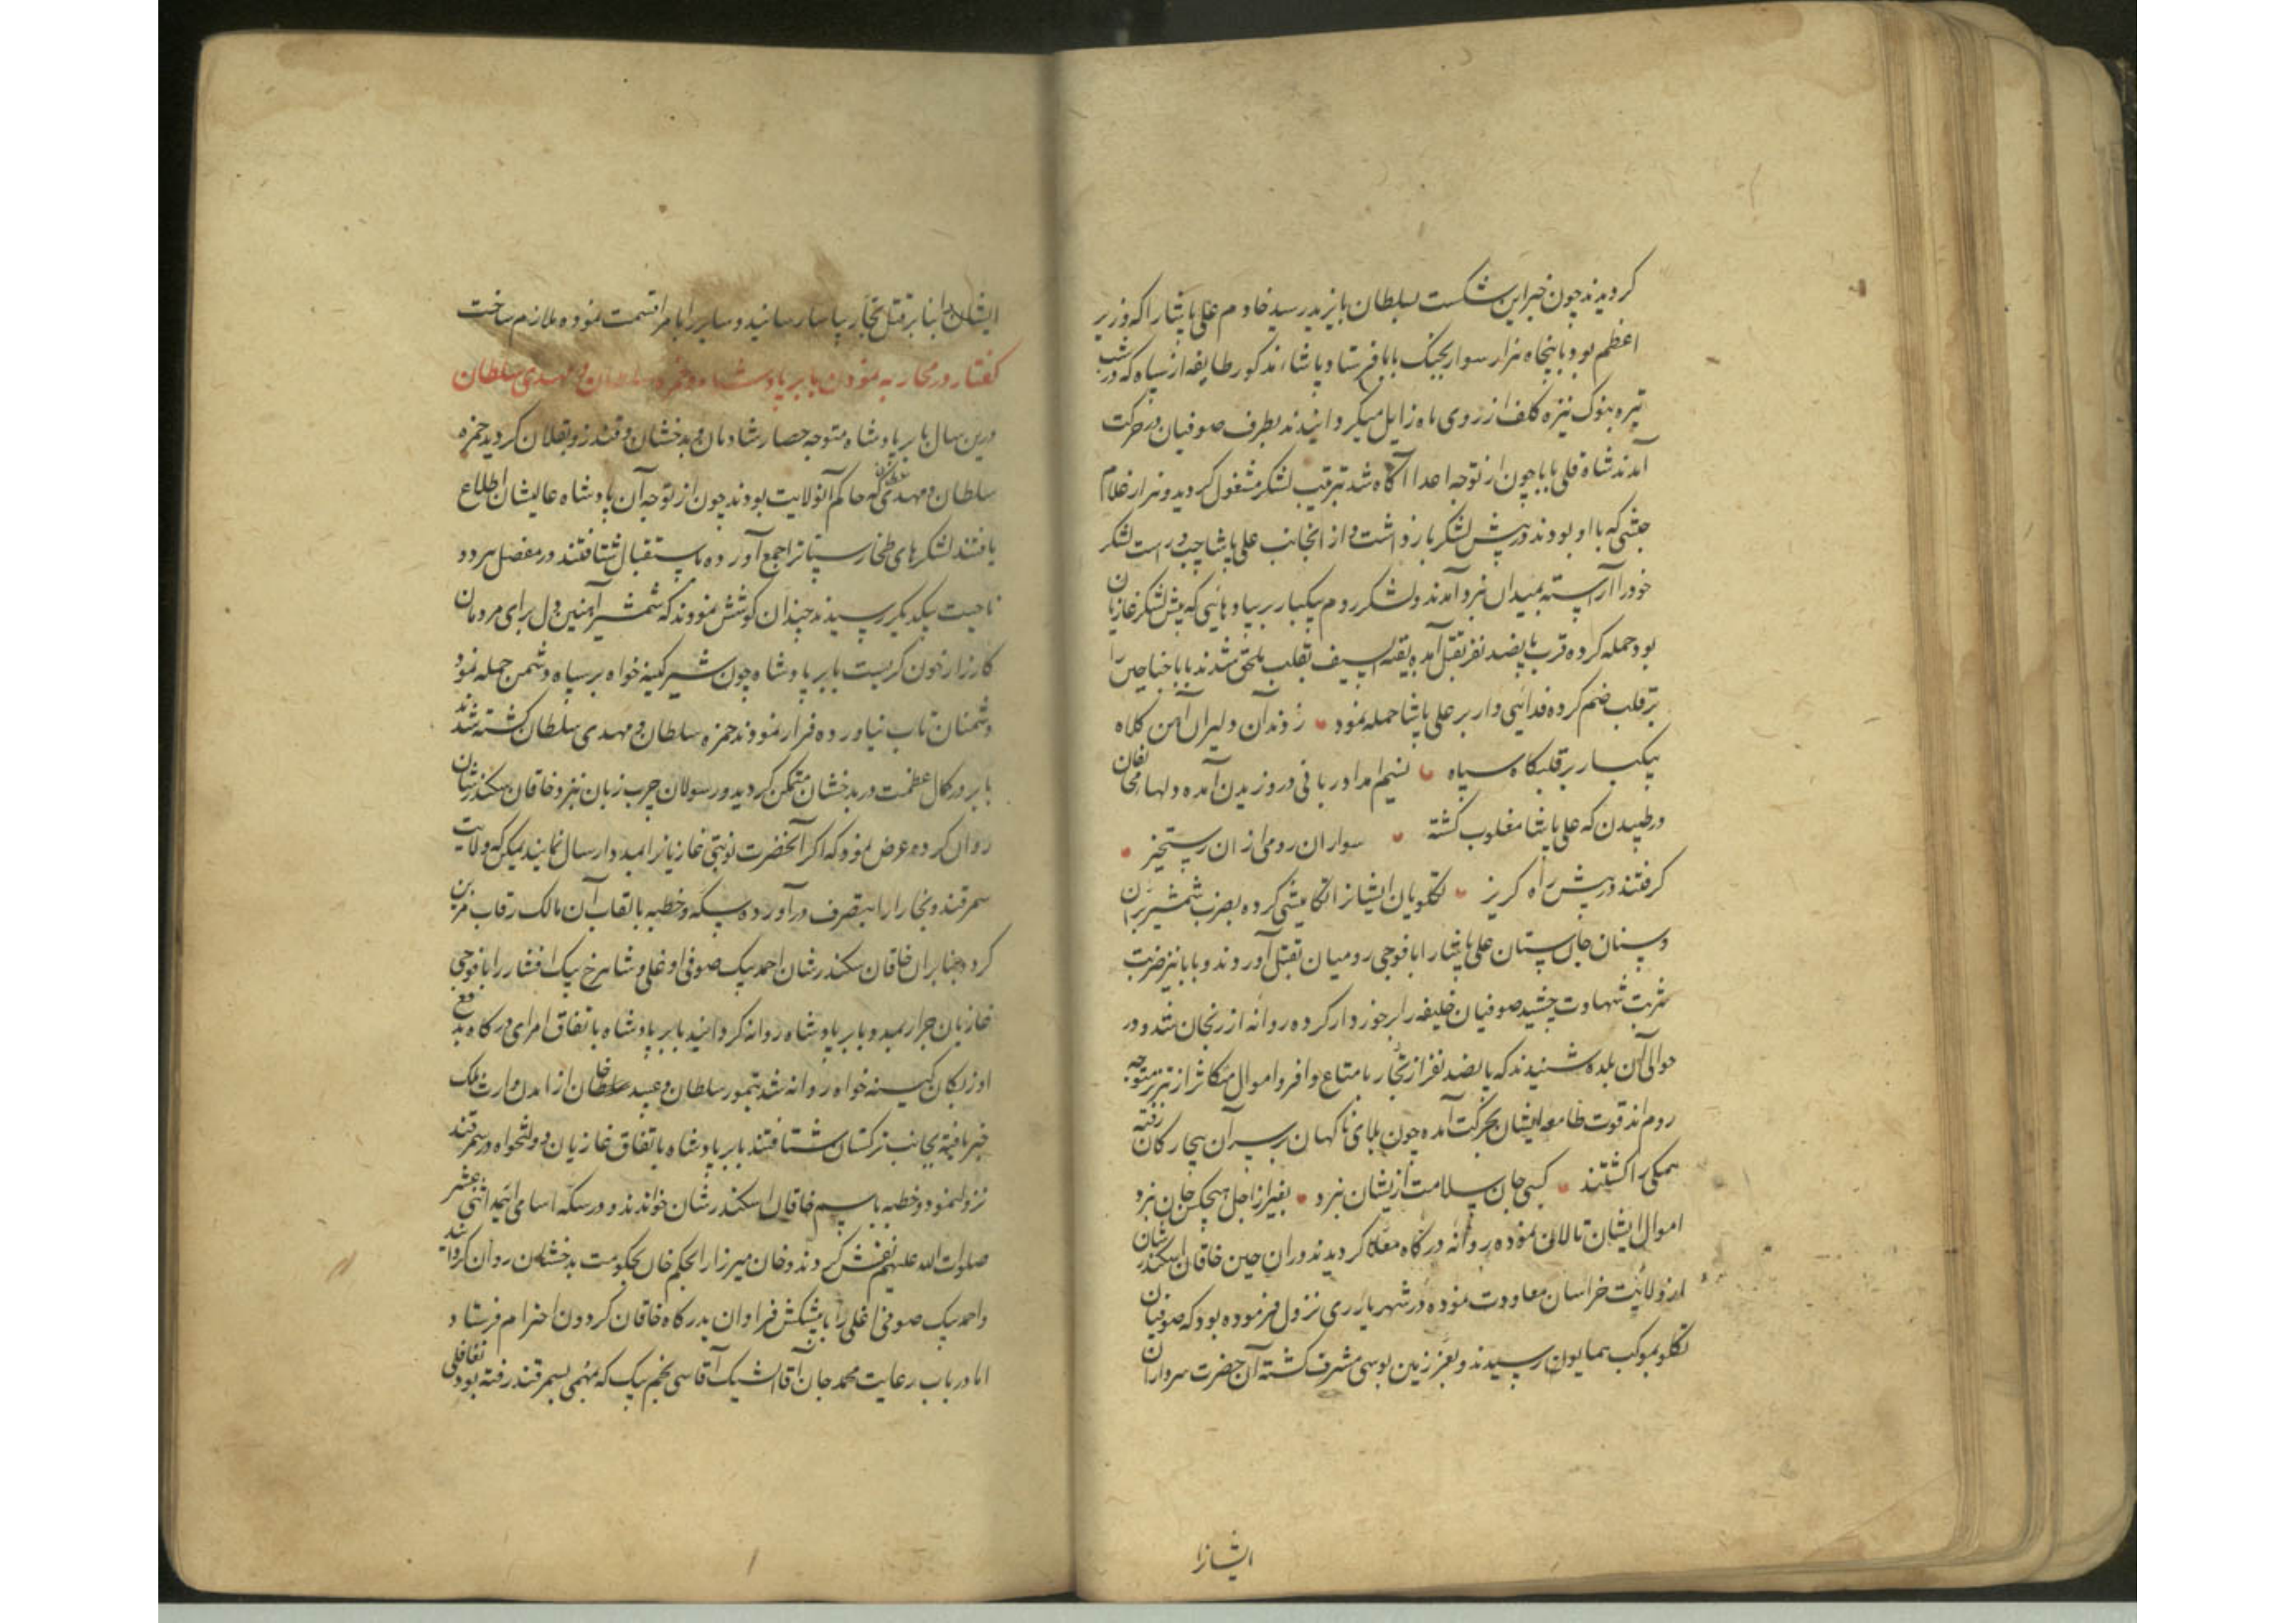 کردیدند چون خبر این شکست بسلطان بایزید رسید خادم علی پاشا را که وزیر
اعظم بود با پنجاه هزار سوار بجنک بابا فرستاد پاشاء مذکور طایفه از سپاه که در شب
تیره بنوک نیزه کلف از روی ماه زایل میکردانیدند بطرف صوفیان در حرکت
آمدند شاه قلی بابا چون از توجه اعدا آکاه شد بترتیب لشکر مشغول کردید و هزار غلام
حبشی که با او بودند در پیش لشکر بازداشت و از انجانب علی پاشا چپ و راست لشکر
خود را آراسته بمیدان نبرد آمدند و لشکر روم یکبار بر پیادهائی که پیش لشکر غازیان
بود حمله کرده قرب پانصد نفر بقتل آمده بقیة السیف بقلب ملحق شدند بابا جناحین را
بر قلب ضم کرده فدائی وار بر علی پاشا حمله نمود روندان دلیران آهن کلاه
یکبار بر قلبکاه سپاه نسیم امداد ربانی در وزیدن آمده دلها مخالفان
در طپیدن که علی پاشا مغلوب کشته سواران رومی از ان رستخیز
کرفتند در پیش راه کریز تکلویان ایشانرا تکامیشی کرده بضرب شمشیر بران
و سنان جان ستان علی پاشا را با فوجی رومیان بقتل آوردند و بابا نیز ضربت
شربت شهادت چشید صوفیان خلیفه را بر خود دار کرده روانه ارزنجان شدند و در
حوالی آن بلده شنیدند که پانصد نفر از تجار با متاع وافر و اموال متکاثر از تبریز متوجه
روم اند قوت طامعه ایشان بحرکت آمده چون بلای ناکهان بر سر آن بیچارکان رفته
همکی را کشتند کسی جان سلامت ازیشان نبرد بغیر از اجل هیچکس جان نبرد
اموال ایشان تالان نموده روانه درکاه معلا کردیدند در ان حین خاقان اسکندر شان
از ولایت خراسان معاودت نموده در شهریار ری نزول فرموده بود که صوفیان
تکلو بموکب همایون رسیدند و بعز زمین بوسی مشرف کشته آن حضرت سرداران
ایشانرا
ایشان را بنابر قتل تجار بیاسا رسانید و سایر را بامرا قسمت نموده ملازم ساخت
کفتار در محاربه نمودن بابر پادشاه و حمزه سلطان و مهدی سلطان
درین سال بابر پادشاه متوجه حصار شادمان و بدخشان و قندز و بقلان کردید حمزه
سلطان و مهدی سلطان که حاکم آنولایت بودند چون از توجه آن پادشاه عالیشان اطلاع
یافتند لشکرهای طخارستانرا جمع آورده باستقبال شتافتند در مفصل هر دو
ناحیت بیکدیکر رسیدند چندان کوشش نمودند که شمشیر آهنین دل برای مردمان
کارزار خون کریست بابر پادشاه چون شیر کینه خواه بر سپاه دشمن حمله نمود
دشمنان تاب نیاورده فرار نمودند حمزه سلطان و مهدی سلطان کشته شدند
بابر در کمال عظمت در بدخشان متمکن کردید و رسولان چرب زبان نزد خاقان سکندر شان
روان کرده عرض نمود که اکر آنحضرت نوبتی غازیانرا بمدد ارسال نمایند یمکن که ولایت
سمرقند و بخارا را بتصرف درآورده سکه و خطبه بالقاب آن مالک رقاب مزین
کردد بنابران خاقان سکندر شان احمد بیک صوفی اوغلی و شاهرخ بیک افشار را با فوجی
غازیان جرار بمدد بابر پادشاه روانه کردانید بابر پادشاه باتفاق امرای درکاه بدفع
اوزبکان کینه خواه روانه شد تیمور سلطان و عبید خان از امدن وارث ملک
خبر یافته بجانب ترکستان شتافتند بابر پادشاه باتفاق غازیان دولتخواه در سمرقند
نزول نمود و خطبه باسم خاقان اسکندر شان خواندند و در سکه اسامی ائمه اثنی عشر
صلوات الله علیهم نقش کردند و خان میرزا را بحکم خان بحکومت بدخشان روان کردانید
و احمد بیک صوفی اغلی را با پیشکش فراوان بدرکاه خاقان کردون احترام فرستاد
اما در باب رعایت محمد جان آقا ایشیک آقاسی نجم بیک که بمهمی بسمرقند رفته بود تغافلی